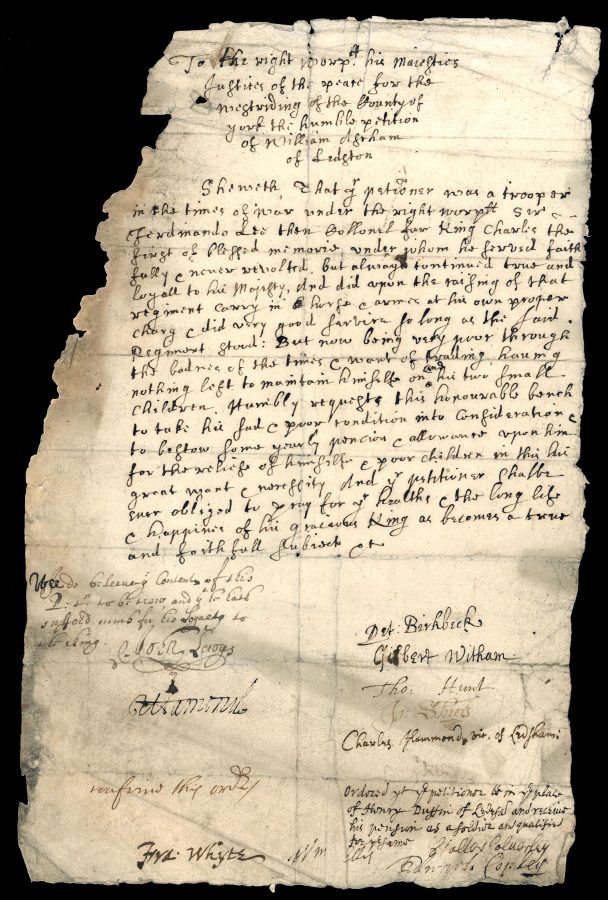 To the right worp.ll his Maiesties
Justices of the peace for the
Westriding of the County of
york the humble petition
of William Askham
of Ledston
Sheweth, That yr petitioner was a trooper
in the times of war under the right worpll Sir
Ferdinando Lee then Collonil for King Charles the
first of blessed memorie, under whom he served faith
fully & never revolted, but always continued true and
loyall to his Majesty, And did upon the raising of that
regiment carry in a horse & armes at his own proper
charg & did very good service so long as the said
Regiment stood: But now being very poor through
the badnes of the times & want of trading, having
nothing left to maintain himselfe and his two small
Children. Humbly requests this honourable bench
to take his sad & poor condition into Consideration &
to bestow some yearly pencion & allowance upon him
for the reliefe of himselfe & poor children in this his
great want & necessity And yr petitioner shalbe
ever obliged to pray for yr healths & the long life
& happines of his gracious King as becomes a true
and faithfull subject &c
Wee do beleave ye Contents of this
P: to be true, and yt he hath
suffered much for his Loyalty to
the king.
John Lewys
Det: Birkbeck
Gilbert Witham
Tho: Hunt
Charles Hammond, vic. of Ledsham
confirme this order
Ordered yt ye petitioner be in ye place
of Henry Duffin of Ledsha and receive
his pension as a soldier and qualified
for ye same
Fra: Whyte
Walter Calverley
Copley